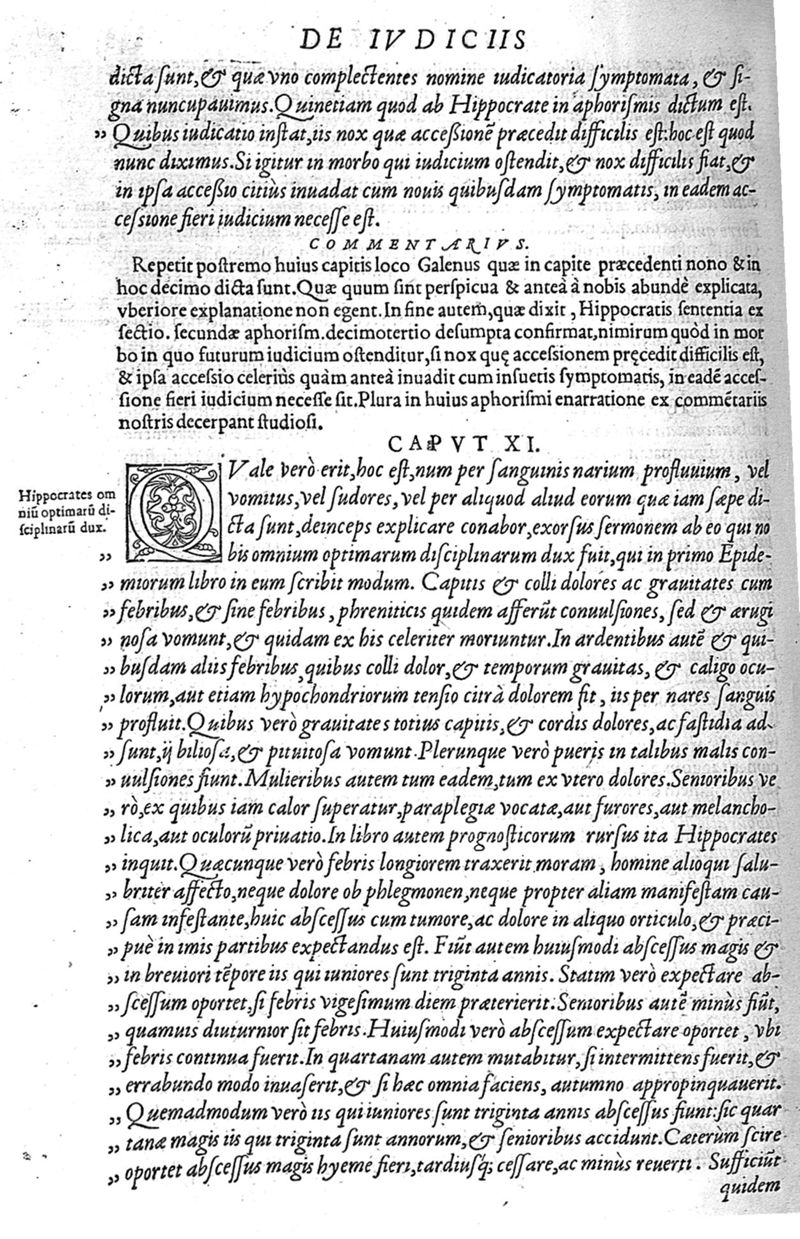 DE IVDICIIS
dicta sunt, & quæ vno complectentes nomine iudicatoria symptomata, & si-
gna nuncupauimus. Quinetiam quod ab Hippocrate in aphorismis dictum est.
„ Quibus iudicatio instat, iis nox quæ accessionē præcedit difficilis est: hoc est quod
nunc diximus. Si igitur in morbo qui iudicium ostendit, & nox difficilis fiat, &
in ipsa accessio citius inuadat cum nouis quibusdam symptomatis, in eadem ac-
cessione fieri iudicium necesse est.
COMMENTARIVS.
Repetit postremo huius capitis loco Galenus quæ in capite præcedenti nono & in
hoc decimo dicta sunt. Quæ quum sint perspicua & anteà à nobis abundè explicata,
vberiore explanatione non egent. In fine autem, quæ dixit, Hippocratis sententia ex
sectio. secundæ aphorism. decimotertio desumpta confirmat, nimirum quòd in mor
bo in quo futurum iudicium ostenditur, si nox quę accessionem pręcedit difficilis est,
& ipsa accessio celeriùs quàm anteà inuadit cum insuetis symptomatis, in eadē acces-
sione fieri iudicium necesse sit. Plura in huius aphorismi enarratione ex commētariis
nostris decerpant studiosi.
CAPVT XI.
Hippocrates om
niū optimarū di-
sciplinarū dux.
QVale verò erit, hoc est, num per sanguinis narium profluuium, vel
vomitus, vel sudores, vel per aliquod aliud eorum quæ iam sæpe di-
cta sunt, deinceps explicare conabor, exorsus sermonem ab eo qui no
„ bis omnium optimarum disciplinarum dux fuit, qui in primo Epide-
„ miorum libro in eum scribit modum. Capitis & colli dolores ac grauitates cum
„ febribus, & sine febribus, phreniticis quidem afferūt conuulsiones, sed & ærugi
„ nosa vomunt, & quidam ex his celeriter moriuntur. In ardentibus autē & qui-
„ busdam aliis febribus, quibus colli dolor, & temporum grauitas, & caligo ocu-
„ lorum, aut etiam hypochondriorum tensio citrà dolorem fit, iis per nares sanguis
„ profluit. Quibus verò grauitates totius capitis, & cordis dolores, ac fastidia ad-
„ sunt, ij biliosa, & pituitosa vomunt. Plerunque verò pueris in talibus malis con-
„ uulsiones fiunt. Mulieribus autem tum eadem, tum ex vtero dolores. Senioribus ve
„ rò, ex quibus iam calor superatur, paraplegiæ vocatæ, aut furores, aut melancho-
„ lica, aut oculorū priuatio. In libro autem prognosticorum rursus ita Hippocrates
„ inquit. Quæcunque verò febris longiorem traxerit moram, homine alioqui salu-
„ briter affecto, neque dolore ob phlegmonen, neque propter aliam manifestam cau-
„ sam infestante, huic abscessus cum tumore, ac dolore in aliquo orticulo, & præci-
„ puè in imis partibus expectandus est. Fiūt autem huiusmodi abscessus magis &
„ in breuiori tēpore iis qui iuniores sunt triginta annis. Statim verò expectare ab-
„ scessum oportet, si febris vigesimum diem præterierit. Senioribus autē minùs fiūt,
„ quamuis diuturnior sit febris. Huiusmodi verò abscessum expectare oportet, vbi
„ febris continua fuerit. In quartanam autem mutabitur, si intermittens fuerit, &
„ errabundo modo inuaserit, & si hæc omnia faciens, autumno appropinquauerit.
„ Quemadmodum verò iis qui iuniores sunt triginta annis abscessus fiunt: sic quar
„ tanæ magis iis qui triginta sunt annorum, & senioribus accidunt. Cæterùm scire
„ oportet abscessus magis hyeme fieri, tardiusq́; cessare, ac minùs reuerti. Sufficiūt
quidem